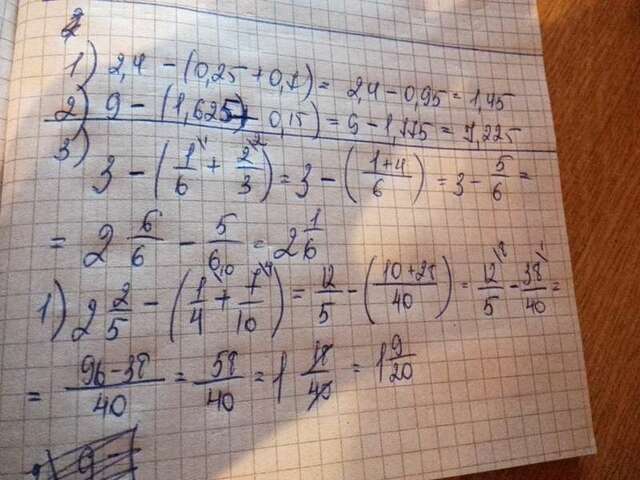 1) 2,4 - (0,25 + 0,7) = 2,4 - 0,95 = 1,45
2) 9 - (1,625 + 0,15) = 9 - 1,775 = 7,225
3) 3 - (1/6 + 2/3) = 3 - ((1+4)/6) = 3 - 5/6 =
= 2 6/6 - 5/6 = 2 1/6
1) 2 2/5 - (1/4 + 7/10) = 12/5 - ((10+28)/40) = 12/5 - 38/40 =
= (96-38)/40 = 58/40 = 1 18/40 = 1 9/20
9 -